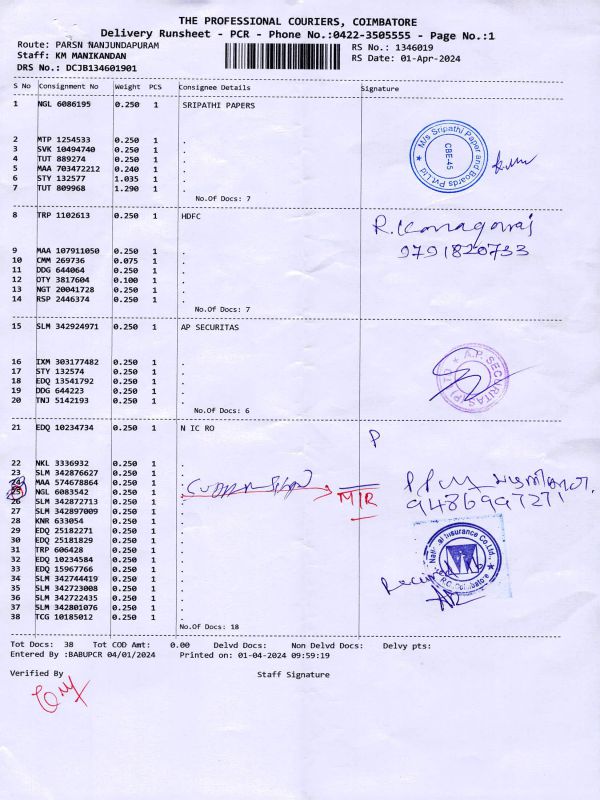 THE PROFESSIONAL COURIERS, COIMBATORE
Delivery Runsheet - PCR - Phone No.:0422-3505555 - Page No.:1
Route: PARSN NANJUNDAPURAM
RS No.: 1346019
Staff: KM MANIKANDAN
RS Date: 01-Apr-2024
DRS No.: DCJB134601901
S No Consignment No Weight PCS Consignee Details Signature
1 NGL 6086195 0.250 1 SRIPATHI PAPERS
2 MTP 1254533 0.250 1 .
3 SVK 10494740 0.250 1 .
4 TUT 889274 0.250 1 .
5 MAA 703472212 0.240 1 .
6 STY 132577 1.035 1 .
7 TUT 809968 1.290 1 .
M/s Sripathi Paper and Boards Pvt.Ltd
CBE-45
No.Of Docs: 7
8 TRP 1102613 0.250 1 HDFC
R. Kanagaraj
9791820733
9 MAA 107911050 0.250 1 .
10 CMM 269736 0.075 1 .
11 DDG 644064 0.250 1 .
12 OTY 3817604 0.100 1 .
13 NGT 20041728 0.250 1 .
14 RSP 2446374 0.250 1 .
No.Of Docs: 7
15 SLM 342924971 0.250 1 AP SECURITAS
16 IXM 303177482 0.250 1 .
17 STY 132574 0.250 1 .
18 EDQ 13541792 0.250 1 .
19 DDG 644223 0.250 1 .
20 TNJ 5142193 0.250 1 .
A.P. SECURITAS
No.Of Docs: 6
21 EDQ 10234734 0.250 1 N IC RO
P
22 NKL 3336932 0.250 1 .
23 SLM 342876627 0.250 1 .
24 MAA 574678864 0.250 1 .
25 NGL 6083542 0.250 1 .
M/R
9486997271
26 SLM 342872713 0.250 1 .
27 SLM 342897009 0.250 1 .
28 KNR 633054 0.250 1 .
29 EDQ 25182271 0.250 1 .
30 EDQ 25181829 0.250 1 .
31 TRP 606428 0.250 1 .
32 EDQ 10234584 0.250 1 .
33 EDQ 15967766 0.250 1 .
34 SLM 342744419 0.250 1 .
35 SLM 342723008 0.250 1 .
36 SLM 342722435 0.250 1 .
37 SLM 342801076 0.250 1 .
38 TCG 10185012 0.250 1 .
National Insurance Co.Ltd.,
Coimbatore
No.Of Docs: 18
Tot Docs: 38 Tot COD Amt: 0.00 Delvd Docs: Non Delvd Docs: Delvy pts:
Entered By :BABUPCR 04/01/2024 Printed on: 01-04-2024 09:59:19
Verified By Staff Signature